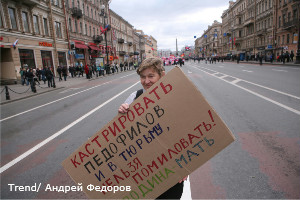 КАСТРИРОВАТЬ
ПЕДОФИЛОВ
И В ТЮРЬМУ,
НЕЛЬЗЯ
ПОМИЛОВАТЬ!
РОДИНА МАТЬ
Trend/ Андрей Федоров